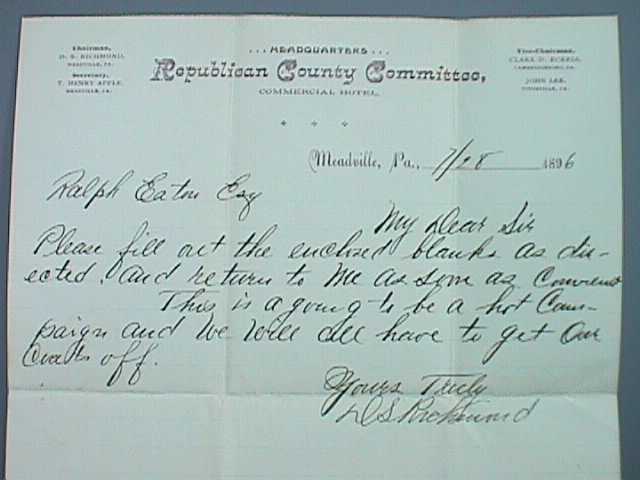 ... HEADQUARTERS ...
Republican County Committee,
COMMERCIAL HOTEL.
Chairman,
D. S. RICHMOND,
MEADVILLE, PA.
Secretary,
T. HENRY APPLE,
MEADVILLE, PA.
Vice-Chairman,
CLARK D. ECKELS,
CAMBRIDGEBORO, PA.
JOHN LEE,
TITUSVILLE, PA.
Meadville, Pa., 7/28 1896
Ralph Eaton Esq
My Dear Sir
Please fill out the enclosed blanks as dir-
ected. and return to me as soon as Convenient
This is a going to be a hot Cam-
paign and we will all have to get our
Coats off.
Yours Truly
D S Richmond